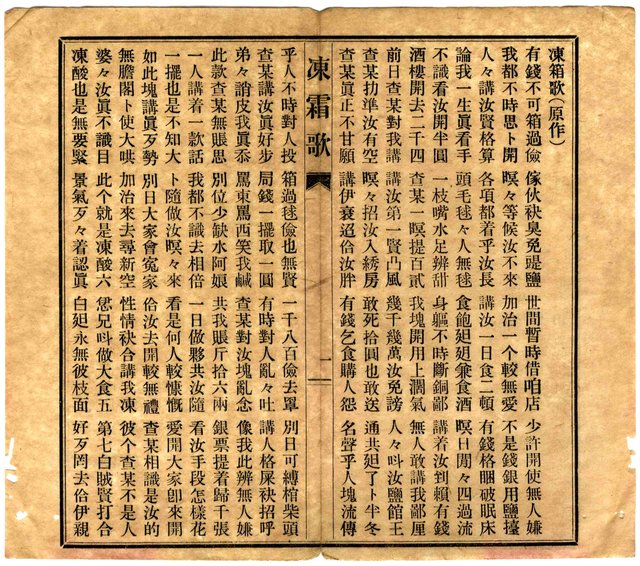 凍箱歌(原作)
有錢不可箱過儉 傢伙袂臭免跪鹽 世間暫時借咱店 少許開使無人嫌
我都不時思卜開 暝々等候汝不來 加治一个較無愛 不是錢銀用鹽擡
人々講汝賢格算 各項都着乎汝長 講汝一日食二頓 有錢格睏破眠床
論我一生眞看手 頭毛毬々人無毬 食飽𨑨𨑨兼食酒 暝日閒々四過流
不識看汝開半圓 一枝嘴水足辨甜 身軀不時斷銅鄙 講着汝到賴有錢
酒樓開去二千四 查某一暝提百貳 我塊開用上濶氣 無人敢講我鄙厘
前日查某對我講 講汝第一賢凸風 幾千幾萬汝免謗 人々呌汝鹽館王
查某扐準汝有空 暝々招汝入綉房 敢死拾圓也敢送 通共𨑨了卜半冬
查某眞正不甘願 講伊衰迢佮汝胖 有錢乞食購人怨 名聲乎人塊流傳
凍霜歌
一
乎人不時對人投 箱過毬儉也無賢 一千八百儉去罩 別日可縛棺柴頭
查某講汝眞好步 局錢一擺取一圓 有時對人亂々吐 講人格屎袂招呼
弟々誚皮我眞忝 罵東罵西笑我鹹 查某對汝塊亂念 像我此辨無人嫌
此款查某無賬思 別位少缺水阿娘 共我賬斤拾六兩 銀票提着歸千張
一人講着一款話 我都不識去相倍 一日做夥共汝隨 看汝手段怎樣花
一擺也是不知大 卜隨做汝暝々來 看是何人較慷慨 愛開大家卽來開
如此塊講眞歹勢 別日大家會寃家 佮汝去開較無禮 查某相識是汝的
無膽閣卜使大哄 加治來去尋新空 性情袂合講我凍 彼个查某不是人
婆々汝眞不識目 此个就是凍酸六 您兄呌做大食五 第七白賊賢打合
凍酸也是無要緊 景氣歹々着認眞 白𨑨永無彼枝面 好歹罔去佮伊親